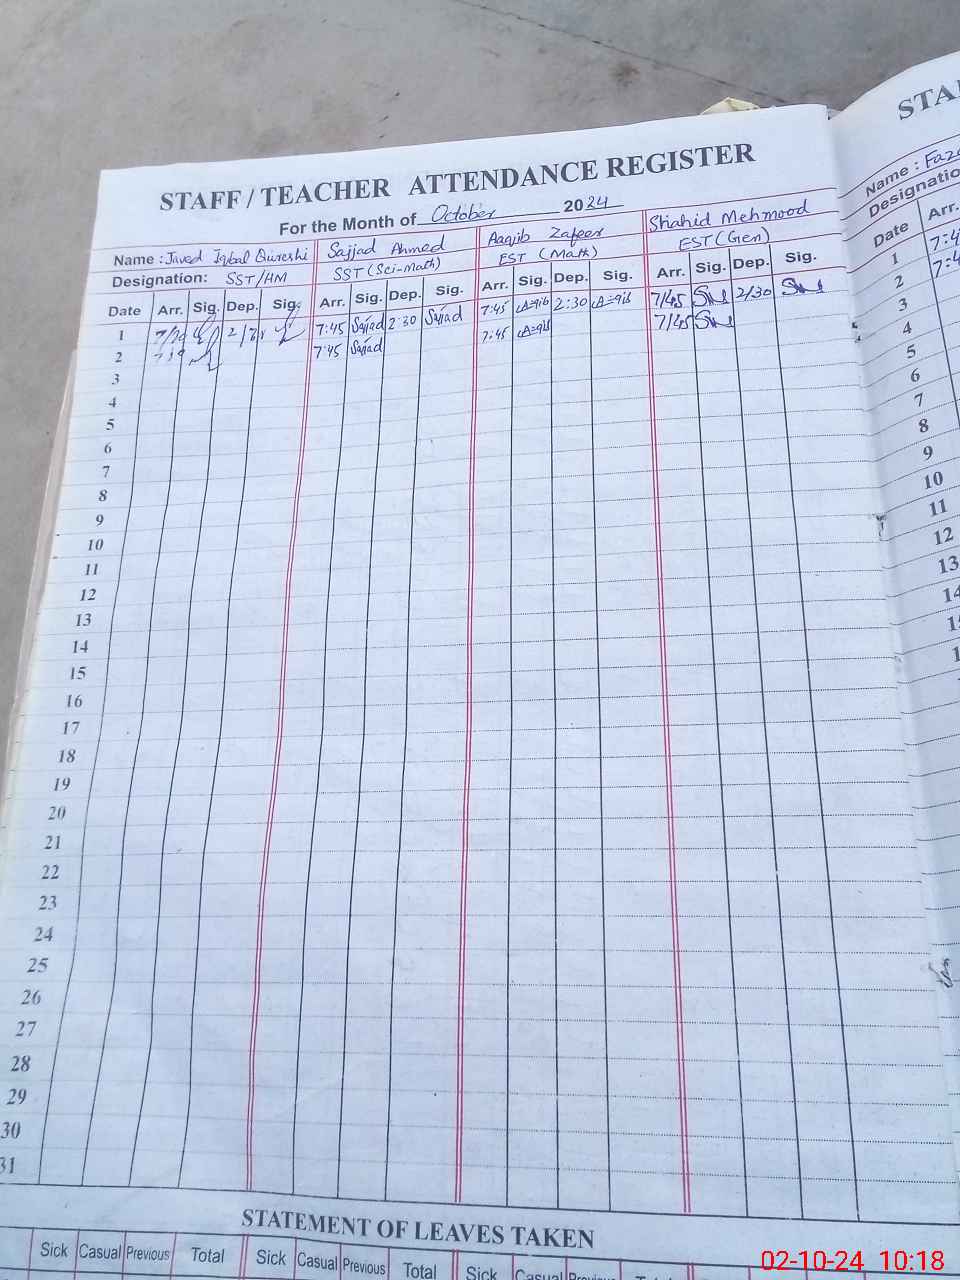 STAFF / TEACHER ATTENDANCE REGISTER
For the Month of October 2024
Name : Javed Iqbal Qureshi Sajjad Ahmed Aaqib Zafeer Shahid Mehmood
Designation: SST/HM SST (Sci-Math) EST (Math) EST (Gen)
Date Arr. Sig. Dep. Sig. Arr. Sig. Dep. Sig. Arr. Sig. Dep. Sig. Arr. Sig. Dep. Sig.
1 7:45 Sajjad 2:30 Sajjad 7:45 Aaqib 2:30 Aaqib 7/45 2/30
2 7:45 Sajjad 7:45 Aaqib 7/45
3
4
5
6
7
8
9
10
11
12
13
14
15
16
17
18
19
20
21
22
23
24
25
26
27
28
29
30
31
STATEMENT OF LEAVES TAKEN
Sick Casual Previous Total Sick Casual Previous Total Sick Casual Previous
STA
Name :
Designatio
Date Arr.
1 7:4
2 7:4
3
4
5
6
7
8
9
10
11
12
13
14
02-10-24 10:18